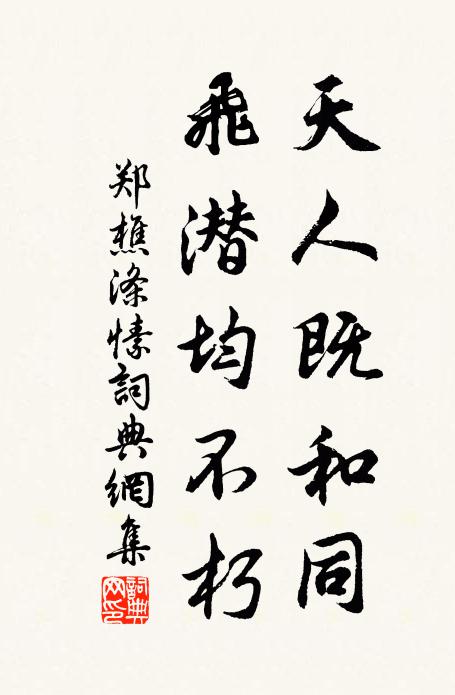 天人既和同
飞潜均不朽
郑樵涤愫詞典網集
詞典网印